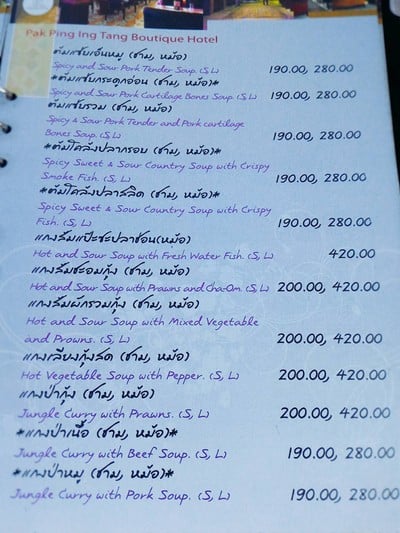 Pak Ping Ing Tang Boutique Hotel
ต้มแซ่บเอ็นหมู (ชาม, หม้อ)
Spicy and Sour Pork Tender Soup. (S, L) 190.00, 280.00
*ต้มแซ่บกระดูกอ่อน (ชาม, หม้อ)*
Spicy and Sour Pork Cartilage Bones Soup. (S, L) 190.00, 280.00
ต้มแซ่บรวม (ชาม, หม้อ)
Spicy & Sour Pork Tender and Pork cartilage
Bones Soup. (S, L) 190.00, 280.00
*ต้มโคล้งปลากรอบ (ชาม, หม้อ)*
Spicy Sweet & Sour Country Soup with Crispy
Smoke Fish. (S, L) 190.00, 280.00
*ต้มโคล้งปลาสลิด (ชาม, หม้อ)*
Spicy Sweet & Sour Country Soup with Crispy
Fish. (S, L) 190.00, 280.00
แกงส้มแป๊ะซะปลาช่อน(หม้อ)
Hot and Sour Soup with Fresh Water Fish. (S, L) 420.00
แกงส้มชะอมกุ้ง (ชาม, หม้อ)
Hot and Sour Soup with Prawns and Cha-Om. (S, L) 200.00, 420.00
แกงส้มผักรวมกุ้ง (ชาม, หม้อ)
Hot and Sour Soup with Mixed Vegetable
and Prowns. (S, L) 200.00, 420.00
แกงเลียงกุ้งสด (ชาม, หม้อ)
Hot Vegetable Soup with Pepper. (S, L) 200.00, 420.00
แกงป่ากุ้ง (ชาม, หม้อ)
Jungle Curry with Prawns. (S, L) 200.00, 420.00
*แกงป่าเนื้อ (ชาม, หม้อ)*
Jungle Curry with Beef Soup. (S, L) 190.00, 280.00
*แกงป่าหมู (ชาม, หม้อ)*
Jungle Curry with Pork Soup. (S, L) 190.00, 280.00